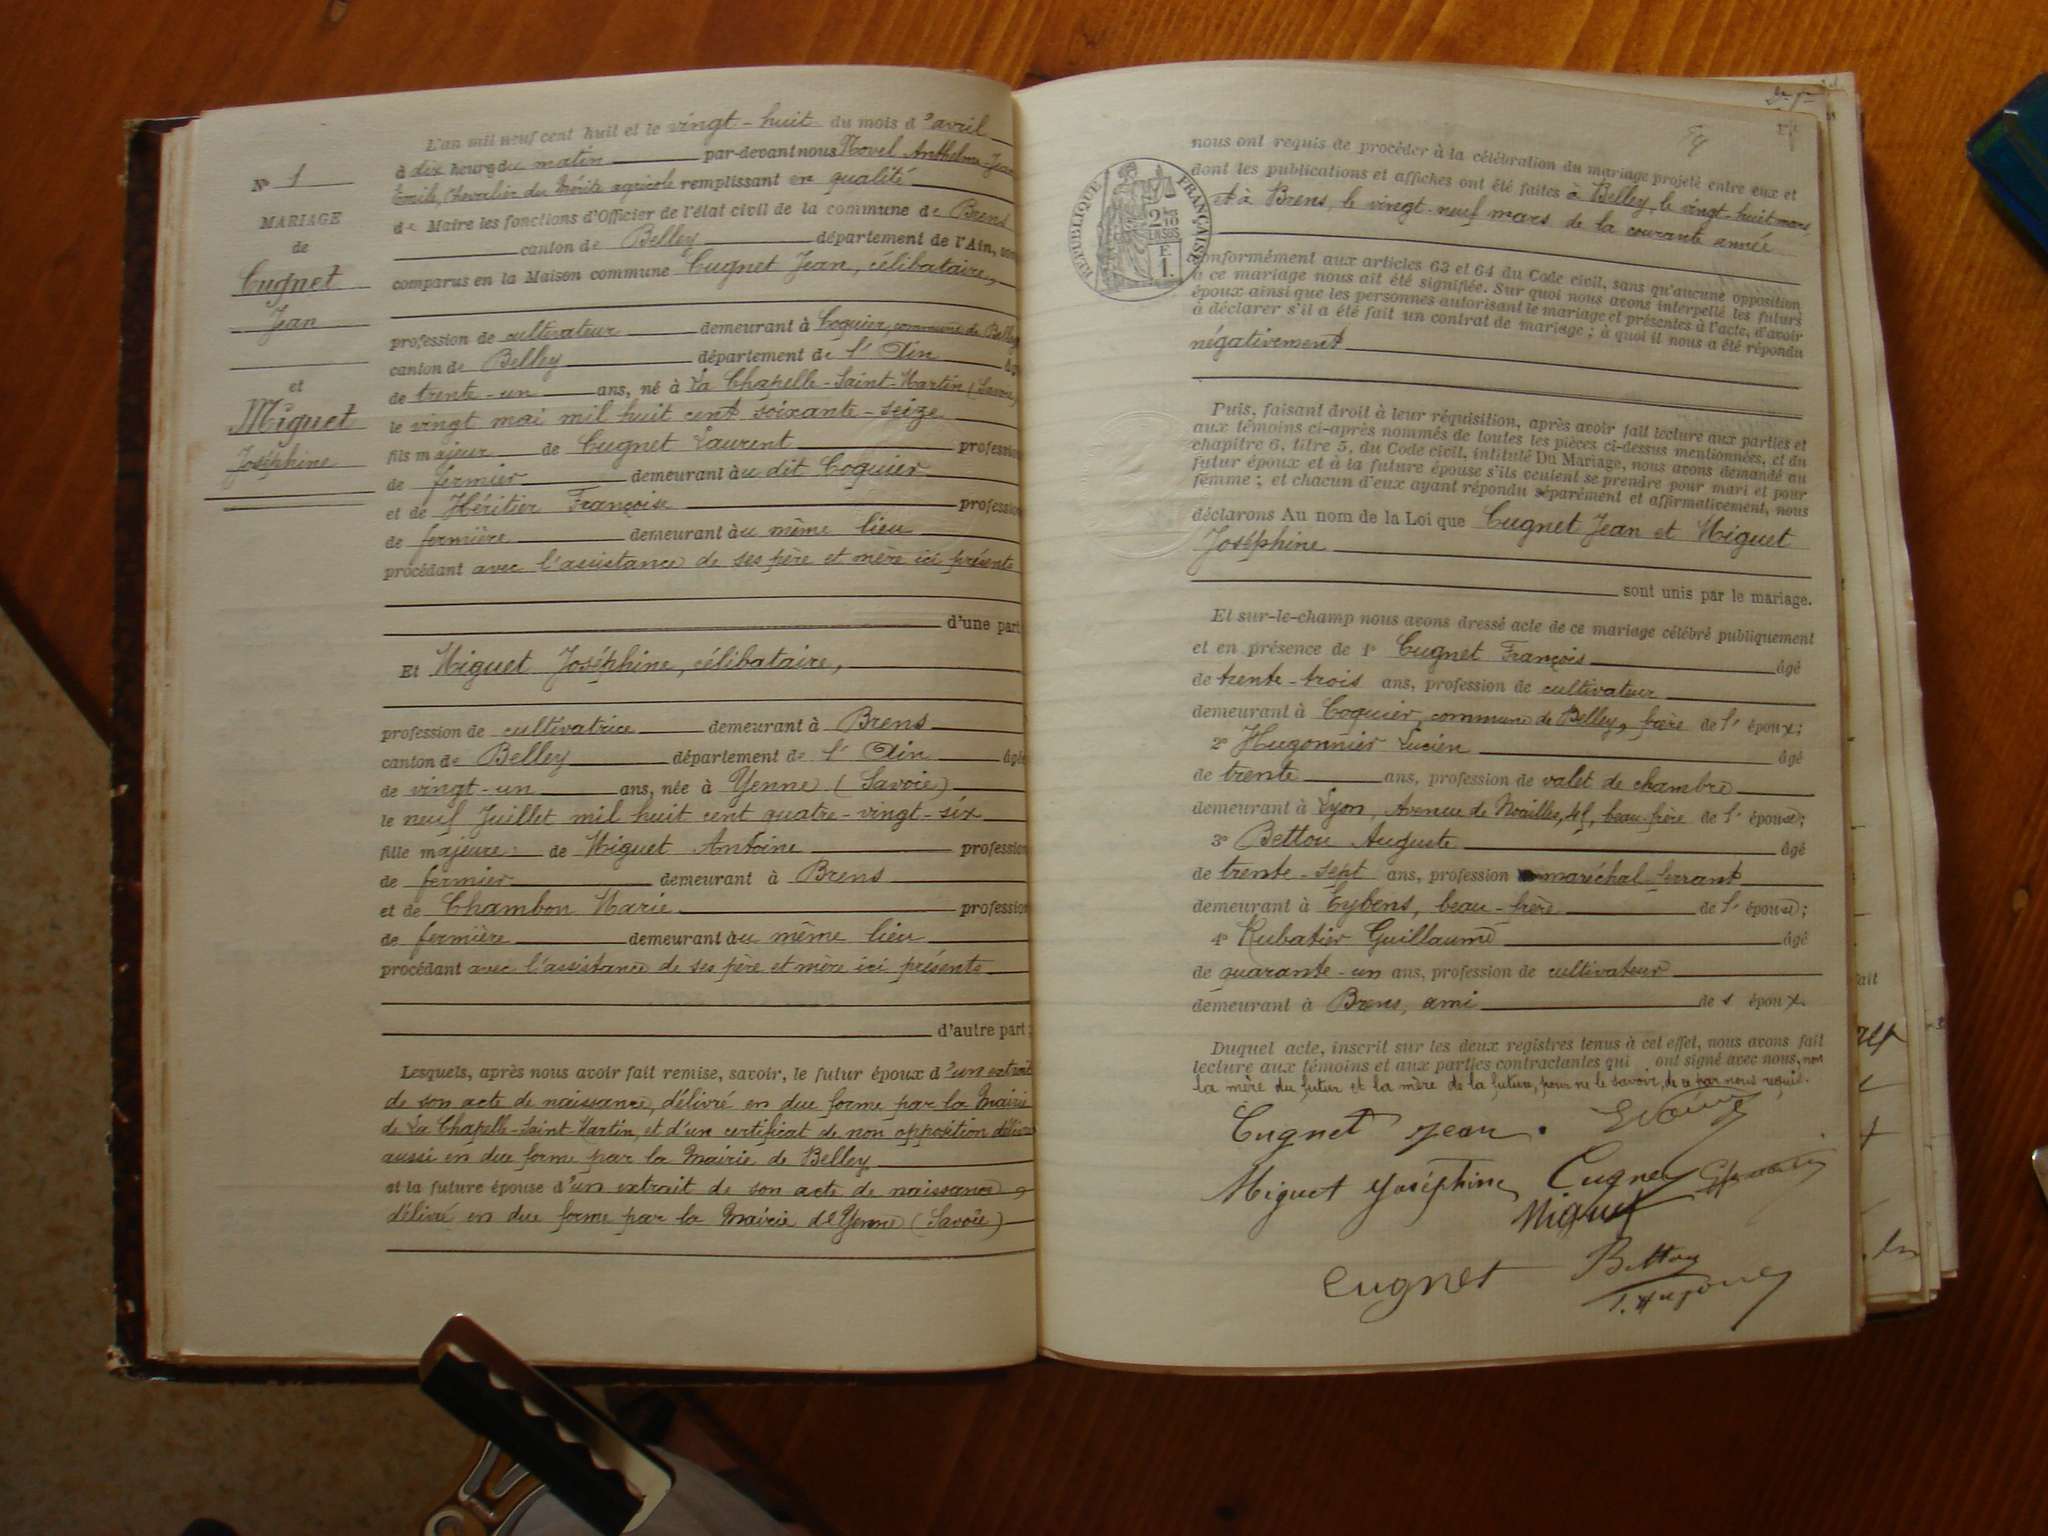 N° 1
MARIAGE
de
Cugnet
Jean
et
Miguet
Joséphine
L'an mil neuf cent huit et le vingt-huit du mois d'avril
à dix heures du matin par-devant nous Novel Anthelme-Jean
Emile, Chevalier du Mérite agricole remplissant en qualité
de Maire les fonctions d'Officier de l'état civil de la commune de Brens
canton de Belley département de l'Ain, sont
comparus en la Maison commune Cugnet Jean, célibataire,
profession de cultivateur demeurant à Coquier, commune de Belley
canton de Belley département de l'Ain âgé
de trente-un ans, né à La Chapelle-Saint-Martin (Savoie)
le vingt mai mil huit cent soixante-seize
fils majeur de Cugnet Laurent profession
de fermier demeurant au dit Coquier
et de Héritier Françoise profession
de fermière demeurant au même lieu
procédant avec l'assistance de ses père et mère ici présents
d'une part
Et Miguet Joséphine, célibataire,
profession de cultivatrice demeurant à Brens
canton de Belley département de l'Ain âgée
de vingt-un ans, née à Yenne (Savoie)
le neuf Juillet mil huit cent quatre-vingt-six
fille majeure de Miguet Antoine profession
de fermier demeurant à Brens
et de Chambon Marie profession
de fermière demeurant au même lieu
procédant avec l'assistance de ses père et mère ici présents
d'autre part;
Lesquels, après nous avoir fait remise, savoir, le futur époux d'un extrait
de son acte de naissance, délivré en due forme par la Mairie
de La Chapelle-Saint-Martin, et d'un certificat de non opposition délivré
aussi en due forme par la Mairie de Belley
et la future épouse d'un extrait de son acte de naissance,
délivré en due forme par la Mairie de Yenne (Savoie)
RÉPUBLIQUE FRANÇAISE
2/10
EN SUS
F.
1.
nous ont requis de procéder à la célébration du mariage projeté entre eux et
dont les publications et affiches ont été faites à Belley, le vingt-huit mars,
et à Brens, le vingt-neuf mars de la courante année
conformément aux articles 63 et 64 du Code civil, sans qu'aucune opposition
à ce mariage nous ait été signifiée. Sur quoi nous avons interpellé les futurs
époux ainsi que les personnes autorisant le mariage et présentes à l'acte, d'avoir
à déclarer s'il a été fait un contrat de mariage; à quoi il nous a été répondu
négativement
Puis, faisant droit à leur réquisition, après avoir fait lecture aux parties et
aux témoins ci-après nommés de toutes les pièces ci-dessus mentionnées, et du
chapitre 6, titre 5, du Code civil, intitulé Du Mariage, nous avons demandé au
futur époux et à la future épouse s'ils veulent se prendre pour mari et pour
femme; et chacun d'eux ayant répondu séparément et affirmativement, nous
déclarons Au nom de la Loi que Cugnet Jean et Miguet
Joséphine
sont unis par le mariage.
Et sur-le-champ nous avons dressé acte de ce mariage célébré publiquement
et en présence de 1° Cugnet François âgé
de trente-trois ans, profession de cultivateur
demeurant à Coquier, commune de Belley, frère de l'époux;
2° Hugonnier Lucien âgé
de trente ans, profession de valet de chambre
demeurant à Lyon, Avenue de Noailles, 45, beau-frère de l'épouse;
3° Bettou Auguste âgé
de trente-sept ans, profession maréchal ferrant
demeurant à Eybens, beau-frère de l'épouse;
4° Rubatier Guillaume âgé
de quarante-un ans, profession de cultivateur
demeurant à Brens, ami des époux.
Duquel acte, inscrit sur les deux registres tenus à cet effet, nous avons fait
lecture aux témoins et aux parties contractantes qui ont signé avec nous, non
la mère du futur et la mère de la future, pour ne le savoir, de ce par nous requis.
Cugnet Jean
Miguet Joséphine Cugnet
Miguet
Cugnet Bettou